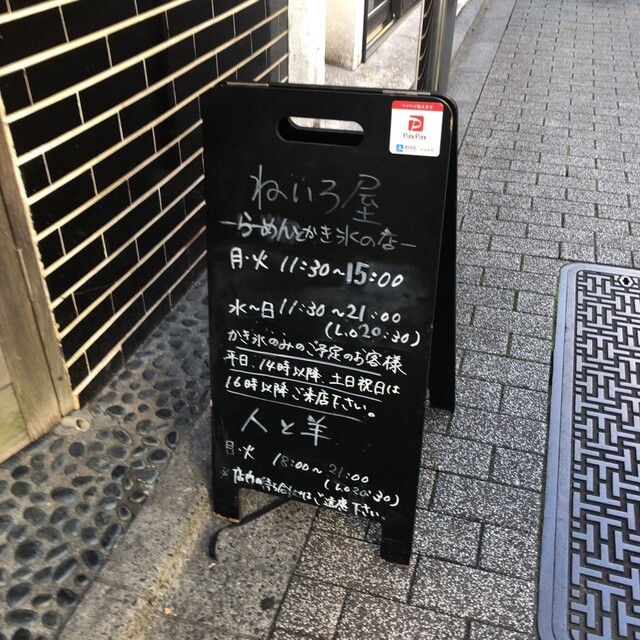 ペイペイ使えます
PayPay
ねいろ屋
—らーめんとかき氷の店—
月・火 11:30〜15:00
水〜日 11:30〜21:00
(L.o20:30)
かき氷のみのご予定のお客様
平日、14時以降、土日祝日は
16時以降ご来店下さい。
人と羊
月・火 18:00〜21:00
(L.o20:30)
※店内の待ち合わせはご遠慮下さい。